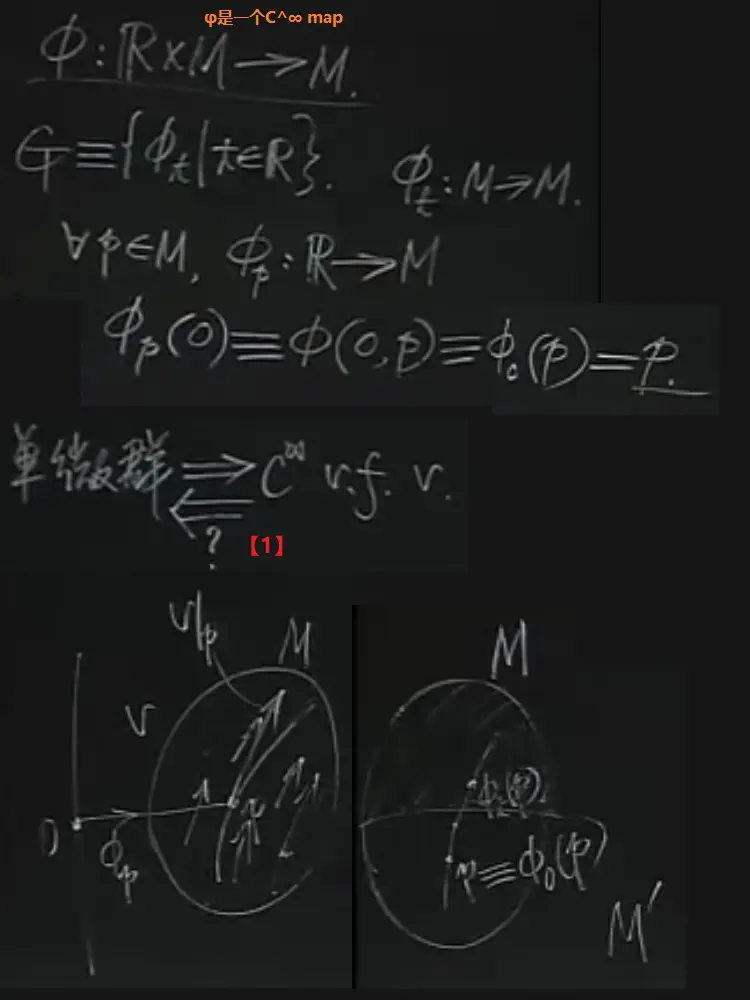 φ是一个C^∞ map
ϕ: ℝ×M → M.
G ≡ {ϕ_t | t∈ℝ}. ϕ_t: M→M.
∀p∈M, ϕ_p: ℝ → M
ϕ_p(0) ≡ ϕ(0,p) ≡ ϕ_0(p) = p.
单微群 ⇒ C^∞ v.f. v.
⇐
? 【1】
v|_p M
v
0 ϕ_p p
M
ϕ_t(p)
p ≡ ϕ_0(p)
M′